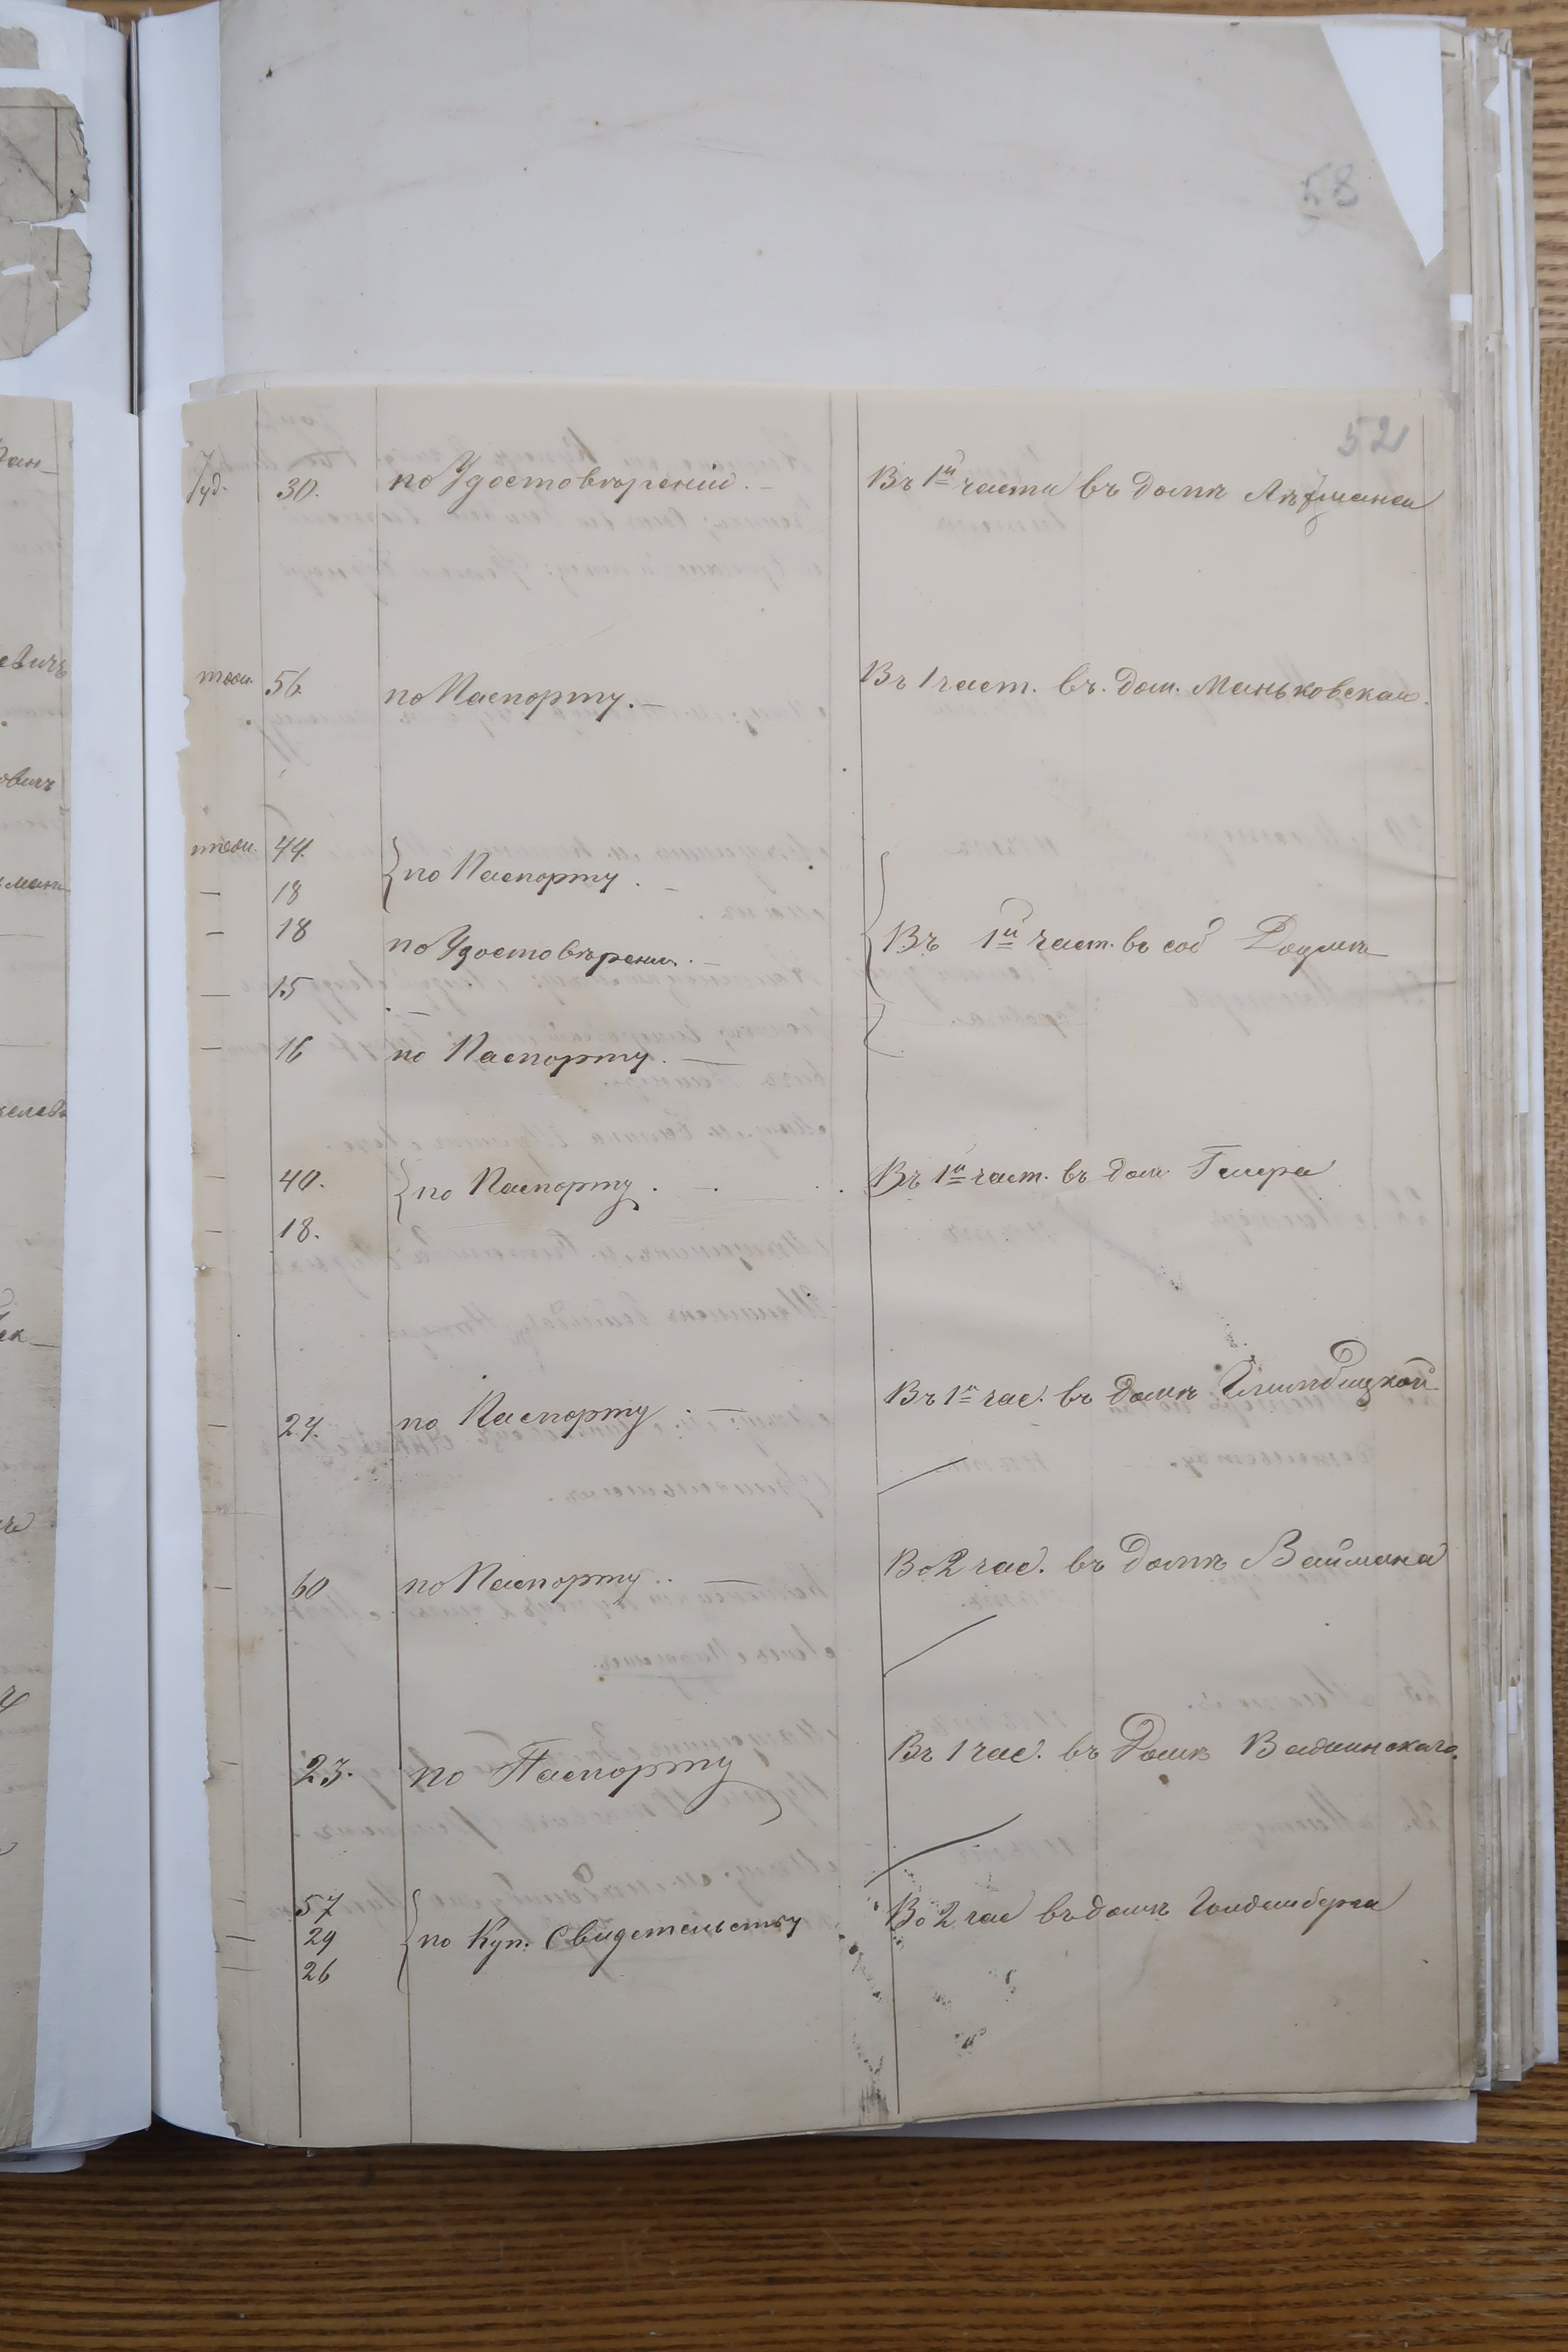 58
52
Iуд. 30. по Удостовѣренiю. — Въ 1й части въ домѣ
56. по Паспорту. — Въ 1 част. въ. дом. Маньковскаго.
44. по Паспорту. —
— 18
— 18 по Удостовѣрению. — Въ 1й част. въ соб Домѣ
— 15
— 16 по Паспорту. —
— 40. по Паспорту. Въ 1й част. въ дом Гилера
— 18.
— 24. по Паспорту. — Въ 1й час. въ домѣ
— 60 по Паспорту.. Во 2 час. въ домѣ Ваймана
— 23. по Паспорту Въ 1 час. въ Домѣ
— 57
— 29 по Куп. Свидетельству Во 2 час въ домѣ Гольденберга
— 26